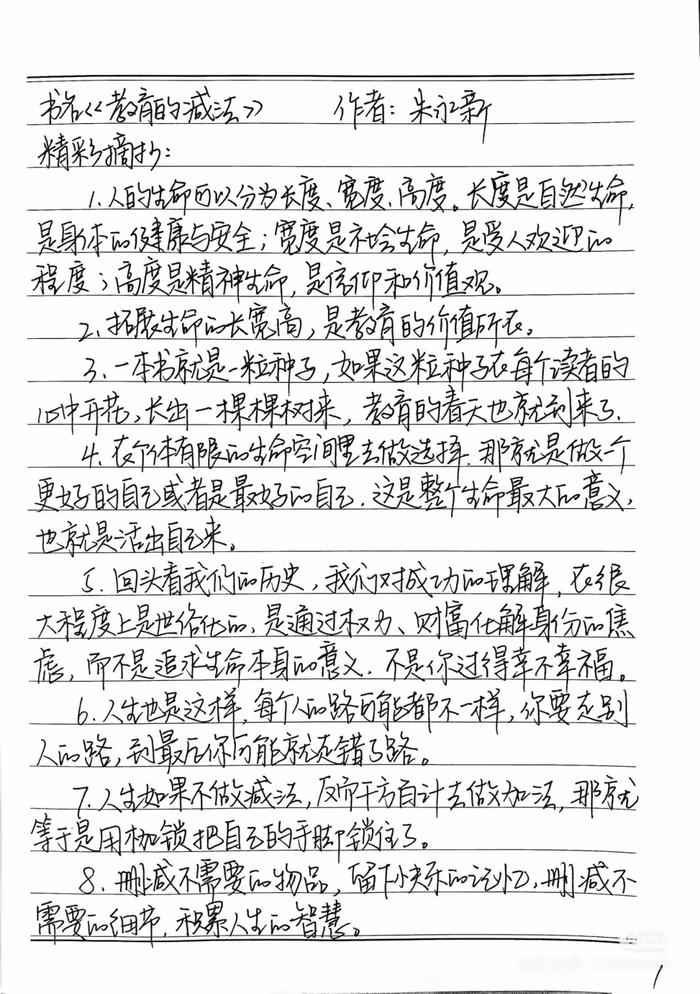 书名《教育的减法》 作者：朱永新
精彩摘抄：
1、人的生命可以分为长度、宽度、高度。长度是自然生命，
是身体的健康与安全；宽度是社会生命，是受人欢迎的
程度；高度是精神生命，是信仰和价值观。
2、拓展生命的长宽高，是教育的价值所在。
3、一本书就是一粒种子，如果这粒种子在每个读者的
心中开花，长出一棵棵树来，教育的春天也就到来了.
4、在个体有限的生命空间里去做选择.那就是做一个
更好的自己或者是最好的自己.这是整个生命最大的意义，
也就是活出自己来。
5、回头看我们的历史，我们对成功的理解，在很
大程度上是世俗化的，是通过权力、财富化解身份的焦
虑，而不是追求生命本身的意义.不是你过得幸不幸福。
6、人生也是这样，每个人的路可能都不一样，你要走别
人的路，到最后你可能就走错了路。
7、人生如果不做减法，反而千方百计去做加法，那就
等于是用枷锁把自己的手脚锁住了。
8、删减不需要的物品，留下快乐的记忆，删减不
需要的细节，积累人生的智慧。
1